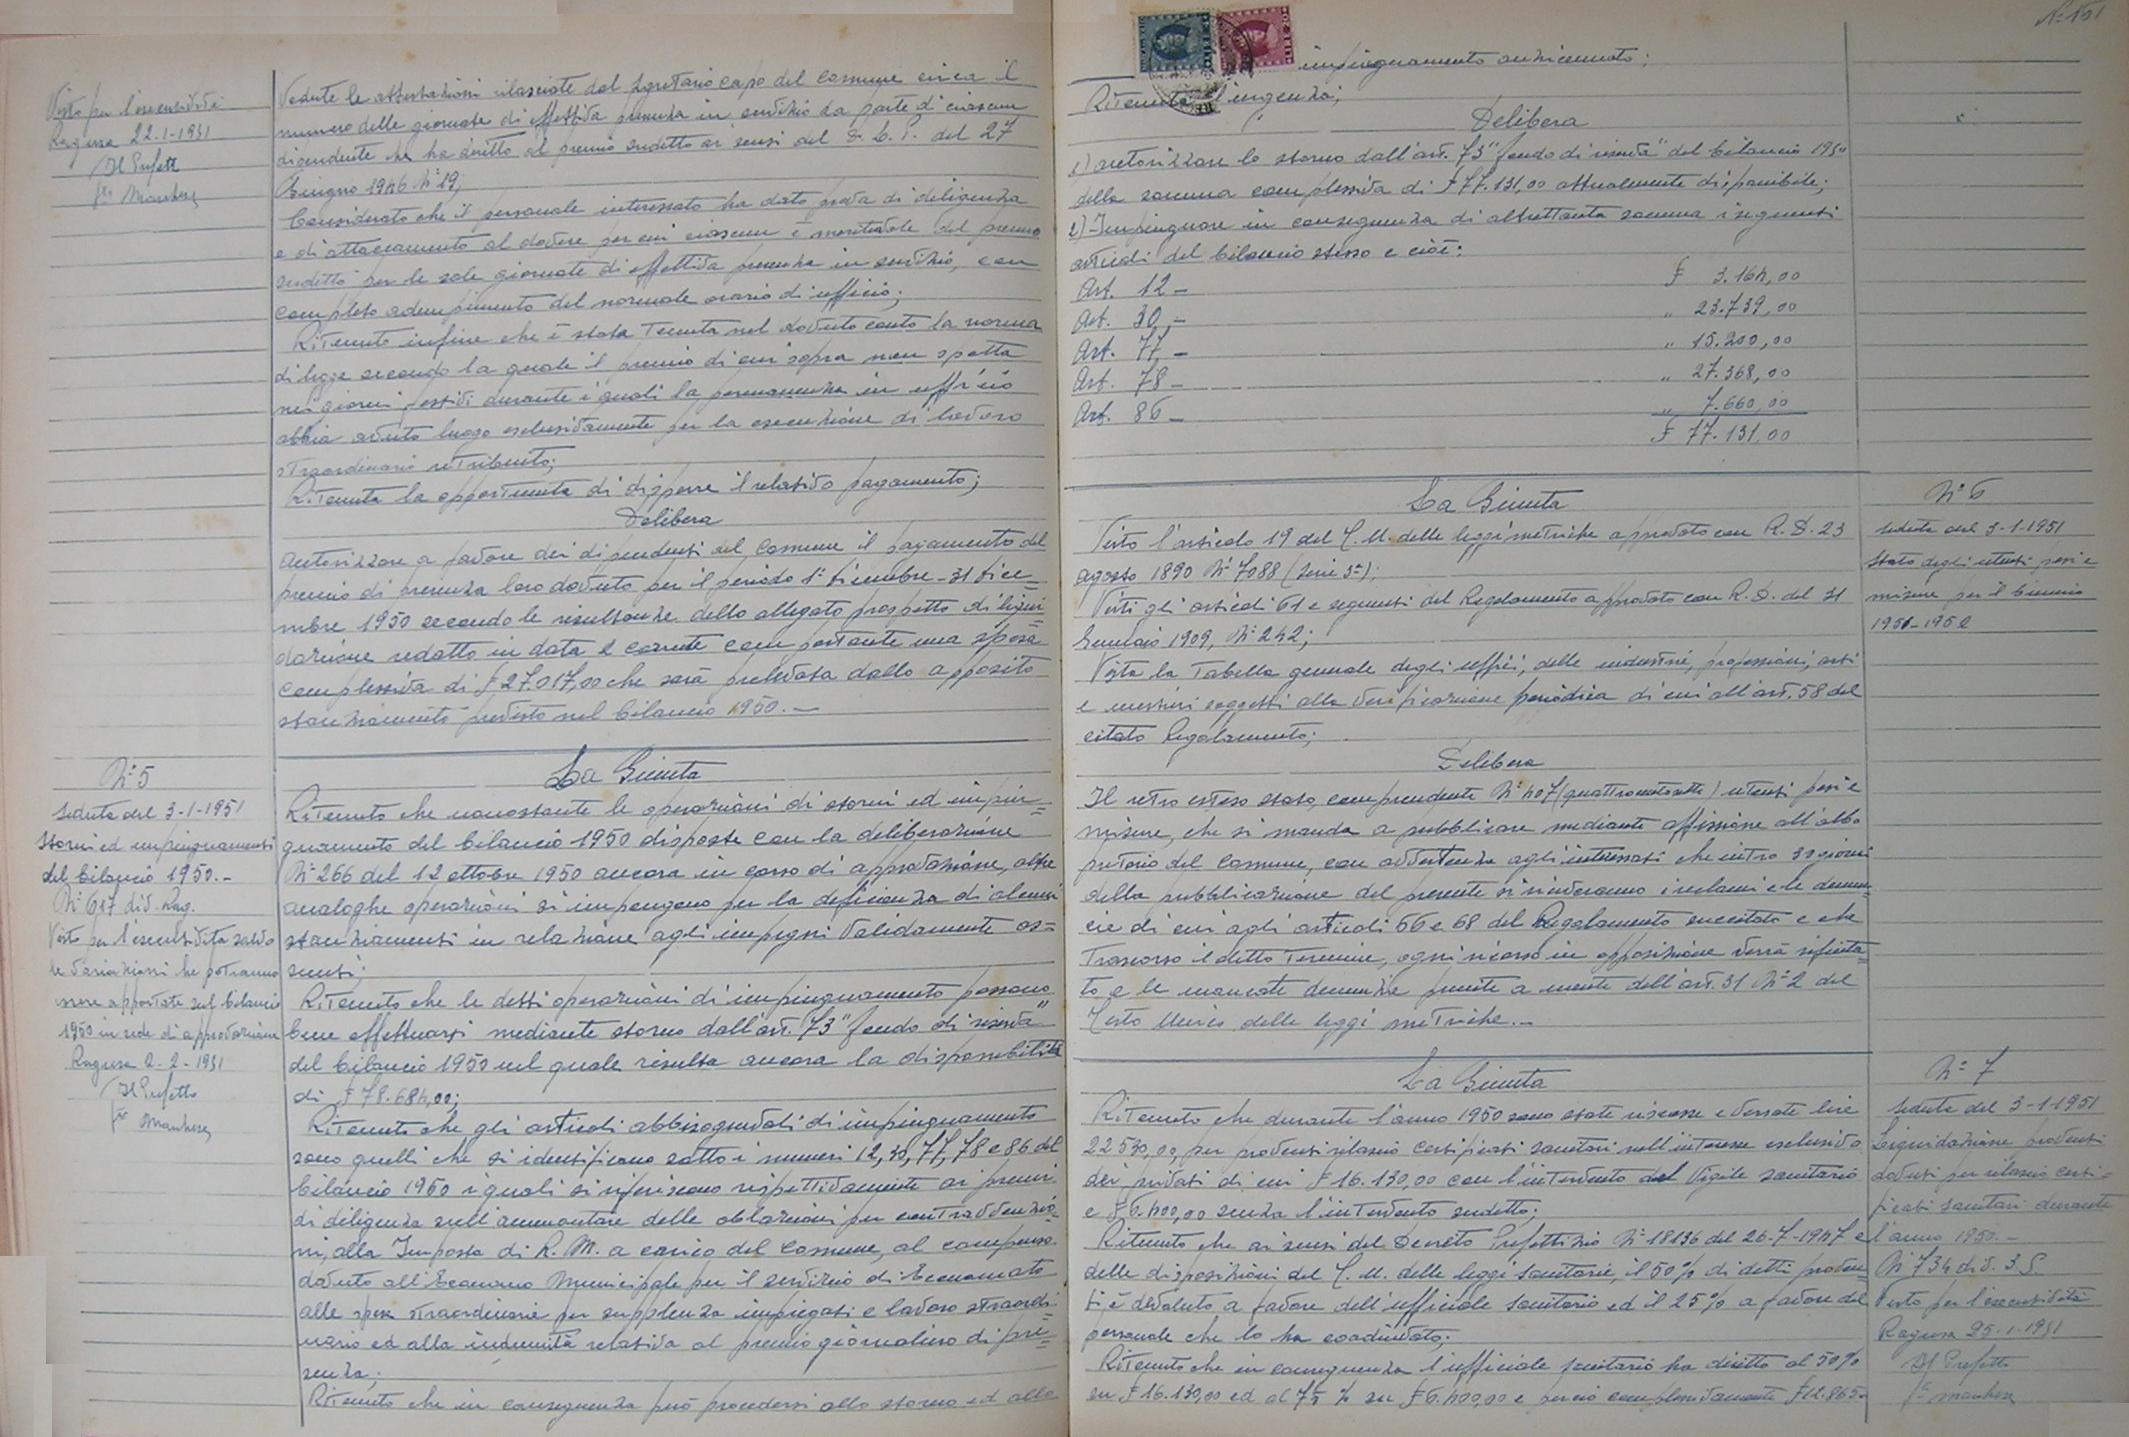 Visto per l'esecutività
Ragusa 22-1-1951
Il Prefetto
Vedute le attestazioni rilasciate dal Segretario capo del Comune circa il
numero delle giornate di effettiva presenza in servizio da parte di ciascun
dipendente che ha diritto al premio sudetto ai sensi del D. L. P. del 27
Giugno 1946 N° 19;
Considerato che il personale interessato ha dato prova di diligenza
e di attaccamento al dovere per cui ciascun è meritevole del premio
sudetto per le sole giornate di effettiva presenza in servizio, con
completo adempimento del normale orario di ufficio;
Ritenuto infine che è stata tenuta nel dovuto conto la norma
di legge secondo la quale il premio di cui sopra non spetta
nei giorni festivi durante i quali la permanenza in ufficio
abbia avuto luogo esclusivamente per la esecuzione di lavoro
straordinario retribuito;
Ritenuta la opportunità di disporre il relativo pagamento;
Delibera
Autorizzare a favore dei dipendenti del Comune il pagamento del
premio di presenza loro dovuto per il periodo 1° Dicembre - 31 Dice=
mbre 1950 secondo le risultanze dello allegato prospetto di liqui=
dazione redatto in data 2 corrente comportante una spesa
complessiva di £ 27.017,00 che sarà prelevata dallo apposito
stanziamento previsto nel bilancio 1950.-
N° 5
Seduta del 3-1-1951
Storni ed impinguamenti
del bilancio 1950.-
N° 617 div. Rag.
Visto per l'esecutività salvo
le variazioni che potranno
essere apportate sul bilancio
1950 in sede di approvazione
Ragusa 2-2-1951
Il Prefetto
La Giunta
Ritenuto che nonostante le operazioni di storni ed impin=
guamento del bilancio 1950 disposte con la deliberazione
N° 266 del 12 ottobre 1950 ancora in corso di approvazione, altre
analoghe operazioni si impongono per la deficienza di alcuni
stanziamenti in relazione agli impegni validamente as=
sunti;
Ritenuto che le detti operazioni di impinguamento possono
bene effettuarsi mediante storno dall'art. 73 "fondo di riserva"
del bilancio 1950 nel quale risulta ancora la disponibilità
di £ 78.684,00;
Ritenuto che gli articoli abbisognevoli di impinguamento
sono quelli che si identificano sotto i numeri 12, 30, 77, 78 e 86 del
bilancio 1950 i quali si riferiscono rispettivamente ai premi
di diligenza sull'ammontare delle oblazioni per contravvenzio=
ni, alla Imposta di R. M. a carico del Comune, al compenso
dovuto all'Economo Municipale per il servizio di Economato
alle spese straordinarie per supplenza impiegati e lavoro straordi=
nario ed alla indennità relativa al premio giornaliero di pre=
senza;
Ritenuto che in conseguenza può procedersi allo storno ed allo
impinguamento anzicennato;
Ritenuta l'urgenza;
Delibera
1) autorizzare lo storno dall'art. 73 "fondo di riserva" del bilancio 1950
della somma complessiva di £ 77.131,00 attualmente disponibile;
2) Impinguare in conseguenza di altrettanta somma i seguenti
articoli del bilancio stesso e cioè:
Art. 12 - £ 3.164,00
Art. 30,- " 23.739,00
Art. 77,- " 15.200,00
Art. 78 - " 27.368,00
Art. 86 - " 7.660,00
£ 77.131,00
La Giunta
Visto l'articolo 19 del T. U. delle leggi metriche approvato con R. D. 23
agosto 1890 N° 7088 (serie 3ª);
Visti gli articoli 61 e seguenti del Regolamento approvato con R. D. del 31
Gennaio 1909, N° 242;
Vista la Tabella generale degli uffici, delle industrie, professioni, arti
e mestieri soggetti alla verificazione periodica di cui all'art. 58 del
citato Regolamento;
Delibera
Il retro esteso stato, comprendente N° 407 (quattrocentosette) utenti pesi e
misure, che si manda a pubblicare mediante affissione all'albo
pretorio del Comune, con avvertenza agli interessati che entro 30 giorni
della pubblicazione del presente si riceveranno i reclami e le denun=
cie di cui agli articoli 66 e 68 del Regolamento succitato e che
trascorso il detto termine, ogni ricorso in opposizione verrà rifiuta=
to e le mancate denunzie punite a mente dell'art. 31 N° 2 del
Testo Unico delle leggi metriche.-
N° 6
Seduta del 3-1-1951
Stato degli utenti pesi e
misure per il biennio
1951-1952
La Giunta
Ritenuto che durante l'anno 1950 sono state riscosse e versate lire
22530,00 per proventi rilascio certificati sanitari nell'interesse esclusivo
dei privati di cui £ 16.130,00 con l'intervento del Vigile sanitario
e £ 6.400,00 senza l'intervento sudetto;
Ritenuto che ai sensi del Decreto Prefettizio N° 18136 del 26-7-1947 e
delle disposizioni del T. U. delle leggi sanitarie, il 50% di detti proven=
ti è devoluto a favore dell'ufficiale sanitario ed il 25% a favore del
personale che lo ha coadiuvato;
Ritenuto che in conseguenza l'ufficiale sanitario ha diritto al 50%
su £ 16.130,00 ed al 75% su £ 6.400,00 e perciò complessivamente £ 12.865-
N° 7
Seduta del 3-1-1951
Liquidazione proventi
dovuti per rilascio certi=
ficati sanitari durante
l'anno 1950.-
N° 734 div. 3 S.
Visto per l'esecutività
Ragusa 25-1-1951
Il Prefetto